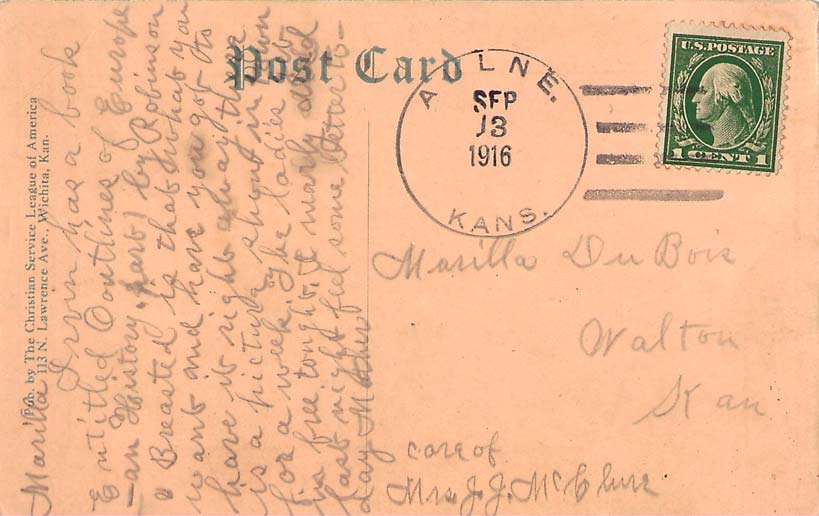 Post Card
A LNE.
SEP
13
1916
KANS.
U.S. POSTAGE
1 CENT 1
Pub. by The Christian Service League of America
113 N. Lawrence Ave., Wichita, Kan.
Marilla Irvin has a book
Entitled Outlines of Europe
-an History part 1 by Robinson
& Breasted is that what you
want and have you got to
have it right away there
is a picture show in
for a week. The ladies get
in free tonight. nearly
last night feel some better to-
day Mother
Marilla DuBois
Walton
Kan
care of
Mrs. J. J. McClure